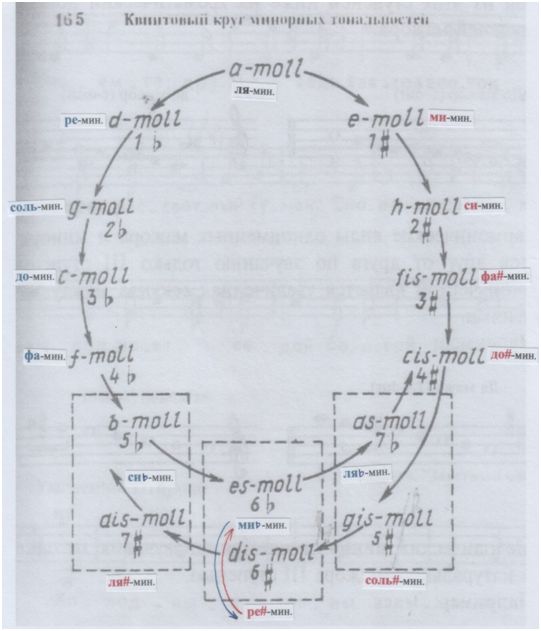 165 Квинтовый круг минорных тональностей
a-moll
ля-мин.
ре-мин. d-moll
1♭
e-moll ми-мин.
1♯
соль-мин. g-moll
2♭
h-moll си-мин.
2♯
до-мин. c-moll
3♭
fis-moll фа#-мин.
3♯
фа-мин. f-moll
4♭
cis-moll до#-мин.
4♯
b-moll
5♭
сиb-мин.
as-moll
7♭
ляb-мин.
es-moll
6♭
миb-мин.
ais-moll
7♯
ля#-мин.
gis-moll
5♯
соль#-мин.
dis-moll
6♯
ре#-мин.